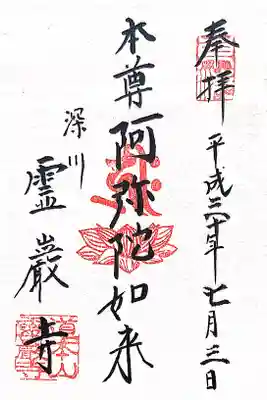 奉拝
平成三十年七月三日
本尊阿弥陀如来
深川
霊巌寺